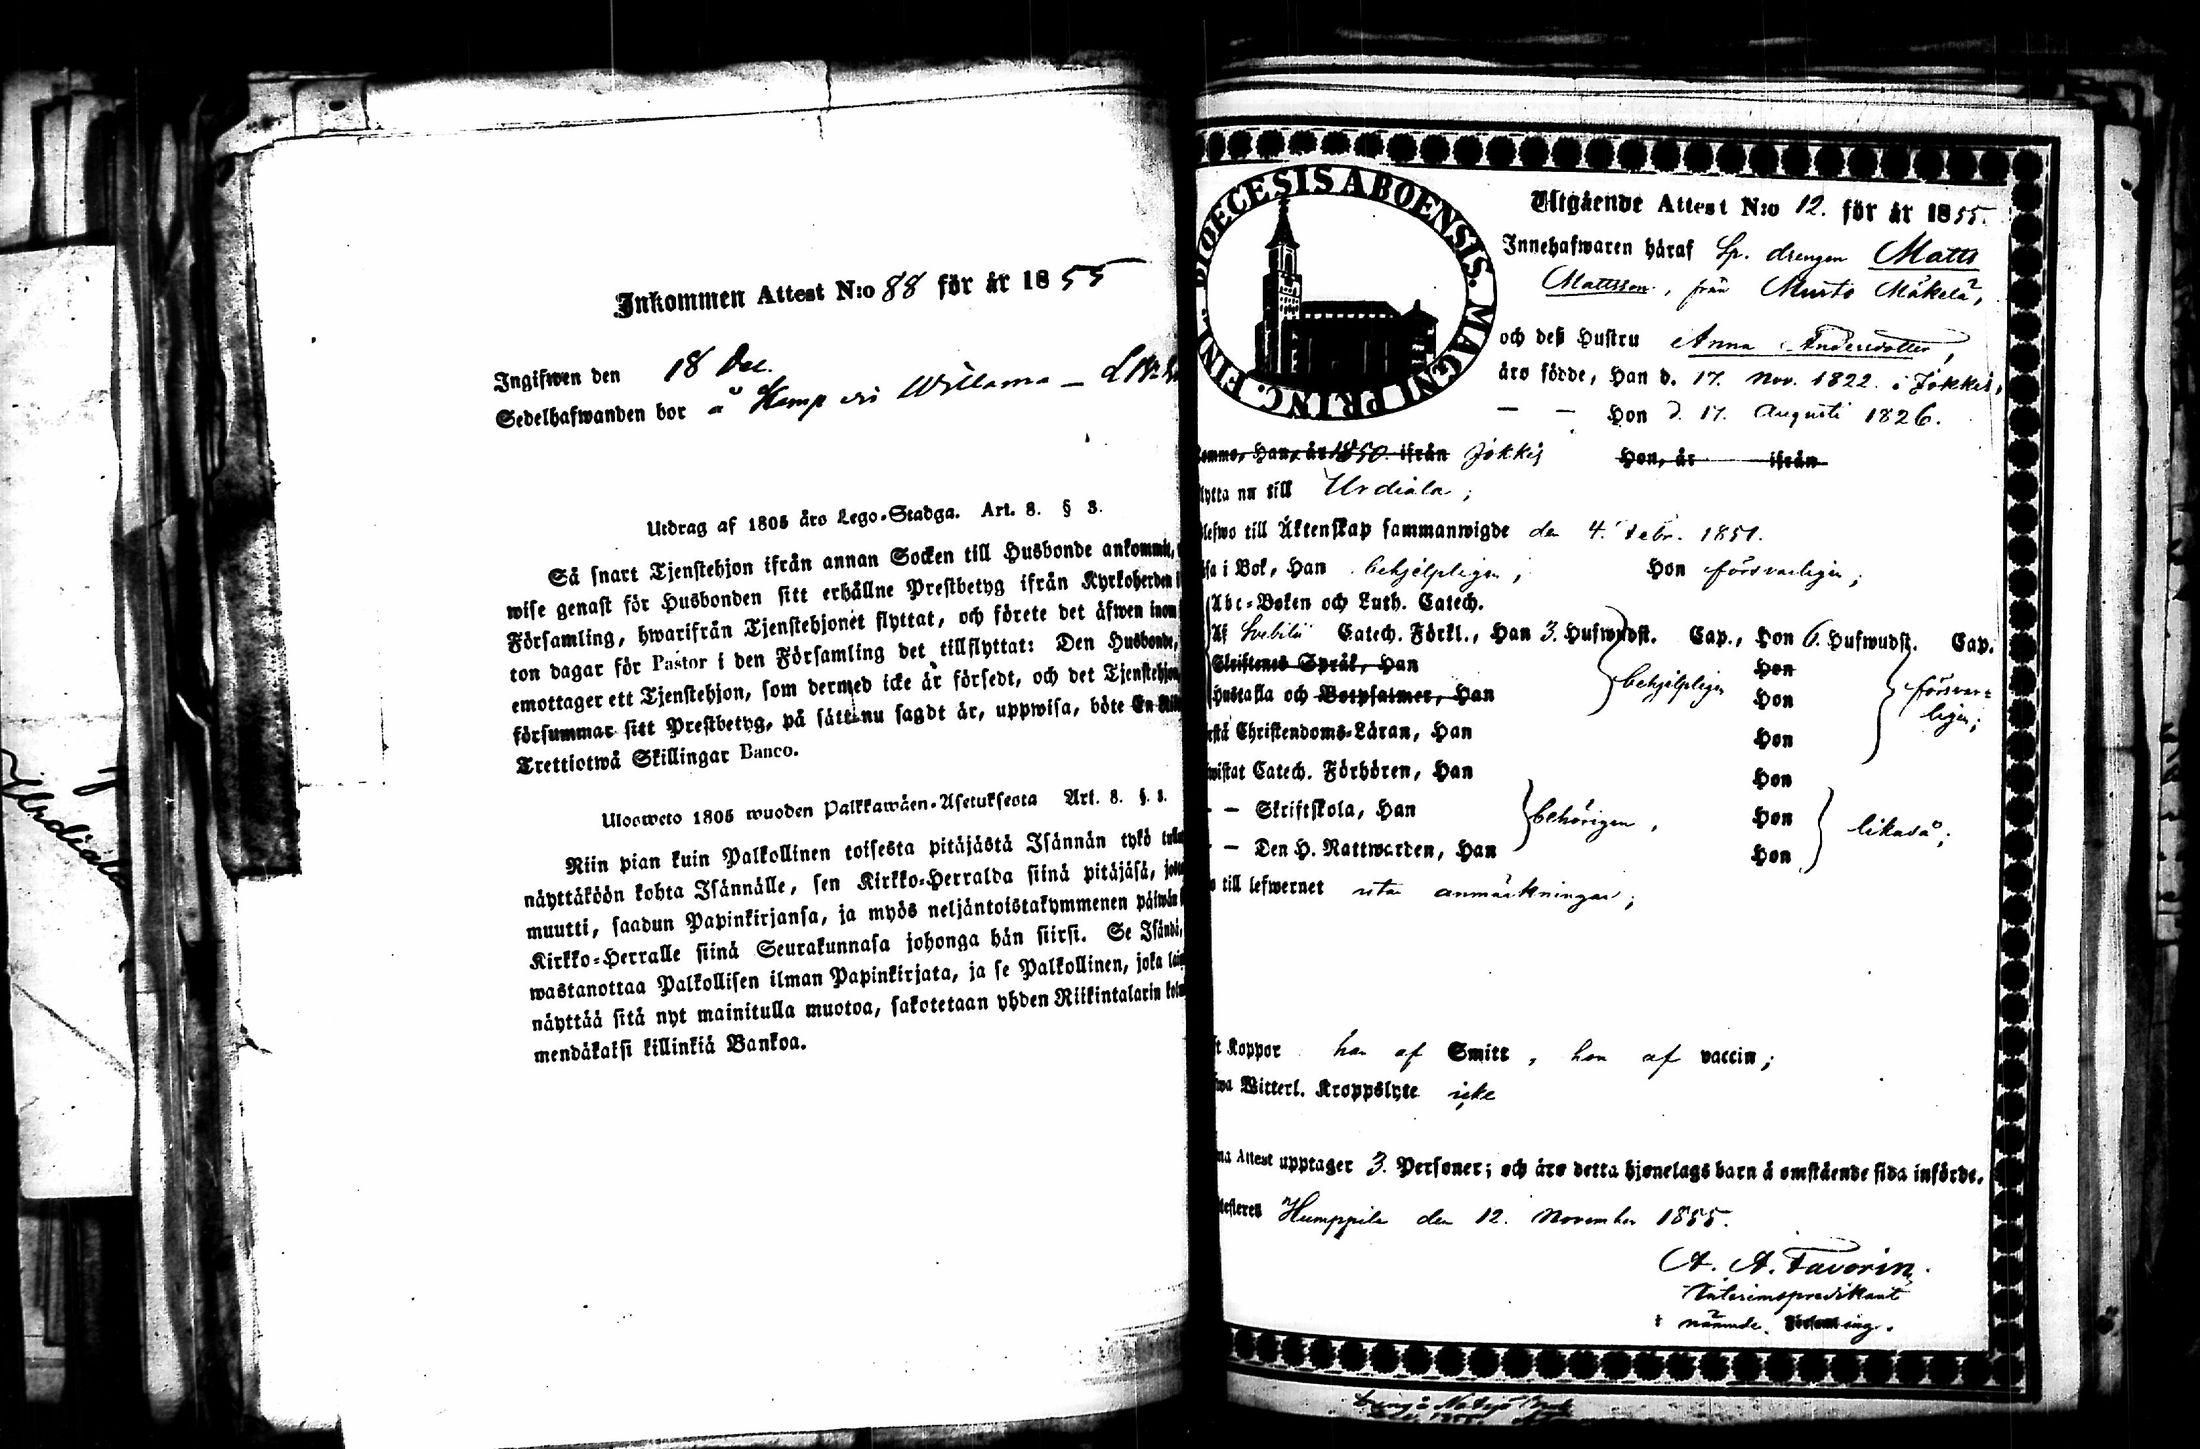 Inkommen Attest N:o 88 för år 1855
Ingifwen den 18 Dec.
Sedelhafwanden bor å Kamp
Utdrag af 1805 års Lego-Stadga. Art. 8. § 3.
Så snart Tjenstehjon ifrån annan Socken till Husbonde ankommit,
wise genast för Husbonden sitt erhållne Prestbetyg ifrån Kyrkoherden i
Församling, hwarifrån Tjenstehjonet flyttat, och förete det äfwen inom
ton dagar för Pastor i den Församling det tillflyttat: Den Husbonde,
emottager ett Tjenstehjon, som dermed icke är försedt, och det Tjenstehjon,
försummar sitt Prestbetyg, på sätt nu sagdt är, uppwisa, böte En
Trettiotwå Skillingar Banco.
Ulosweto 1805 wuoden Palkkawäen-Asetuksesta Art. 8. §. 3.
Niin pian kuin Palkollinen toisesta pitäjästä Isännän tykö
näyttäköön kohta Isännälle, sen Kirkko-Herralda siinä pitäjäsä,
muutti, saadun Papinkirjansa, ja myös neljäntoistakymmenen päiwän
Kirkko-Herralle siinä Seurakunnasa johonga hän siirsi. Se Isändä,
wastanottaa Palkollisen ilman Papinkirjata, ja se Palkollinen, joka
näyttää sitä nyt mainitulla muotoa, sakotetaan yhden Riikintalarin
mendäkaksi killinkiä Bankoa.
Urdiala
DIOECESIS ABOENSIS. MAGNI PRINC. FINL.
Utgående Attest N:o 12. för år 1855.
Innehafwaren häraf Sp. drengen Matts
Mattsson, från Murto Mäkelä,
och deß Hustru Anna Andersdotter,
äro födde, Han d. 17. Nov. 1822. i Jokkis,
— — Hon d. 17. Augusti 1826.
Han, år 1850. ifrån Jokkis Hon, år ifrån
lytta nu till Urdiala;
lefwo till Äktenskap sammanwigde den 4. Febr. 1851.
sa i Bok, Han behjelpligen, Hon försvarligen;
Abc-Boken och Luth. Catech.
Af Svebilii Catech. Förkl., Han 3. Hufwudst. Cap., Hon 6. Hufwudst. Cap.
Skriftenes Språk, Han Hon
Hustafla och Botpsalmer, Han behjelpligen Hon försvar=
ligen;
rstå Christendoms-Läran, Han Hon
wistat Catech. Förhören, Han Hon
— — Skriftskola, Han behörigen, Hon likaså;
— — Den H. Nattwarden, Han Hon
till lefwernet utan anmärkningar;
Koppor han af Smitt, hon af vaccin;
Witterl. Kroppslyte icke
na Attest upptager 3. Personer; och äro detta hjonelags barn å omstående sida införde.
testeres Humppila den 12. November 1855.
A. A. Favorin.
Interimspredikant
nämnde